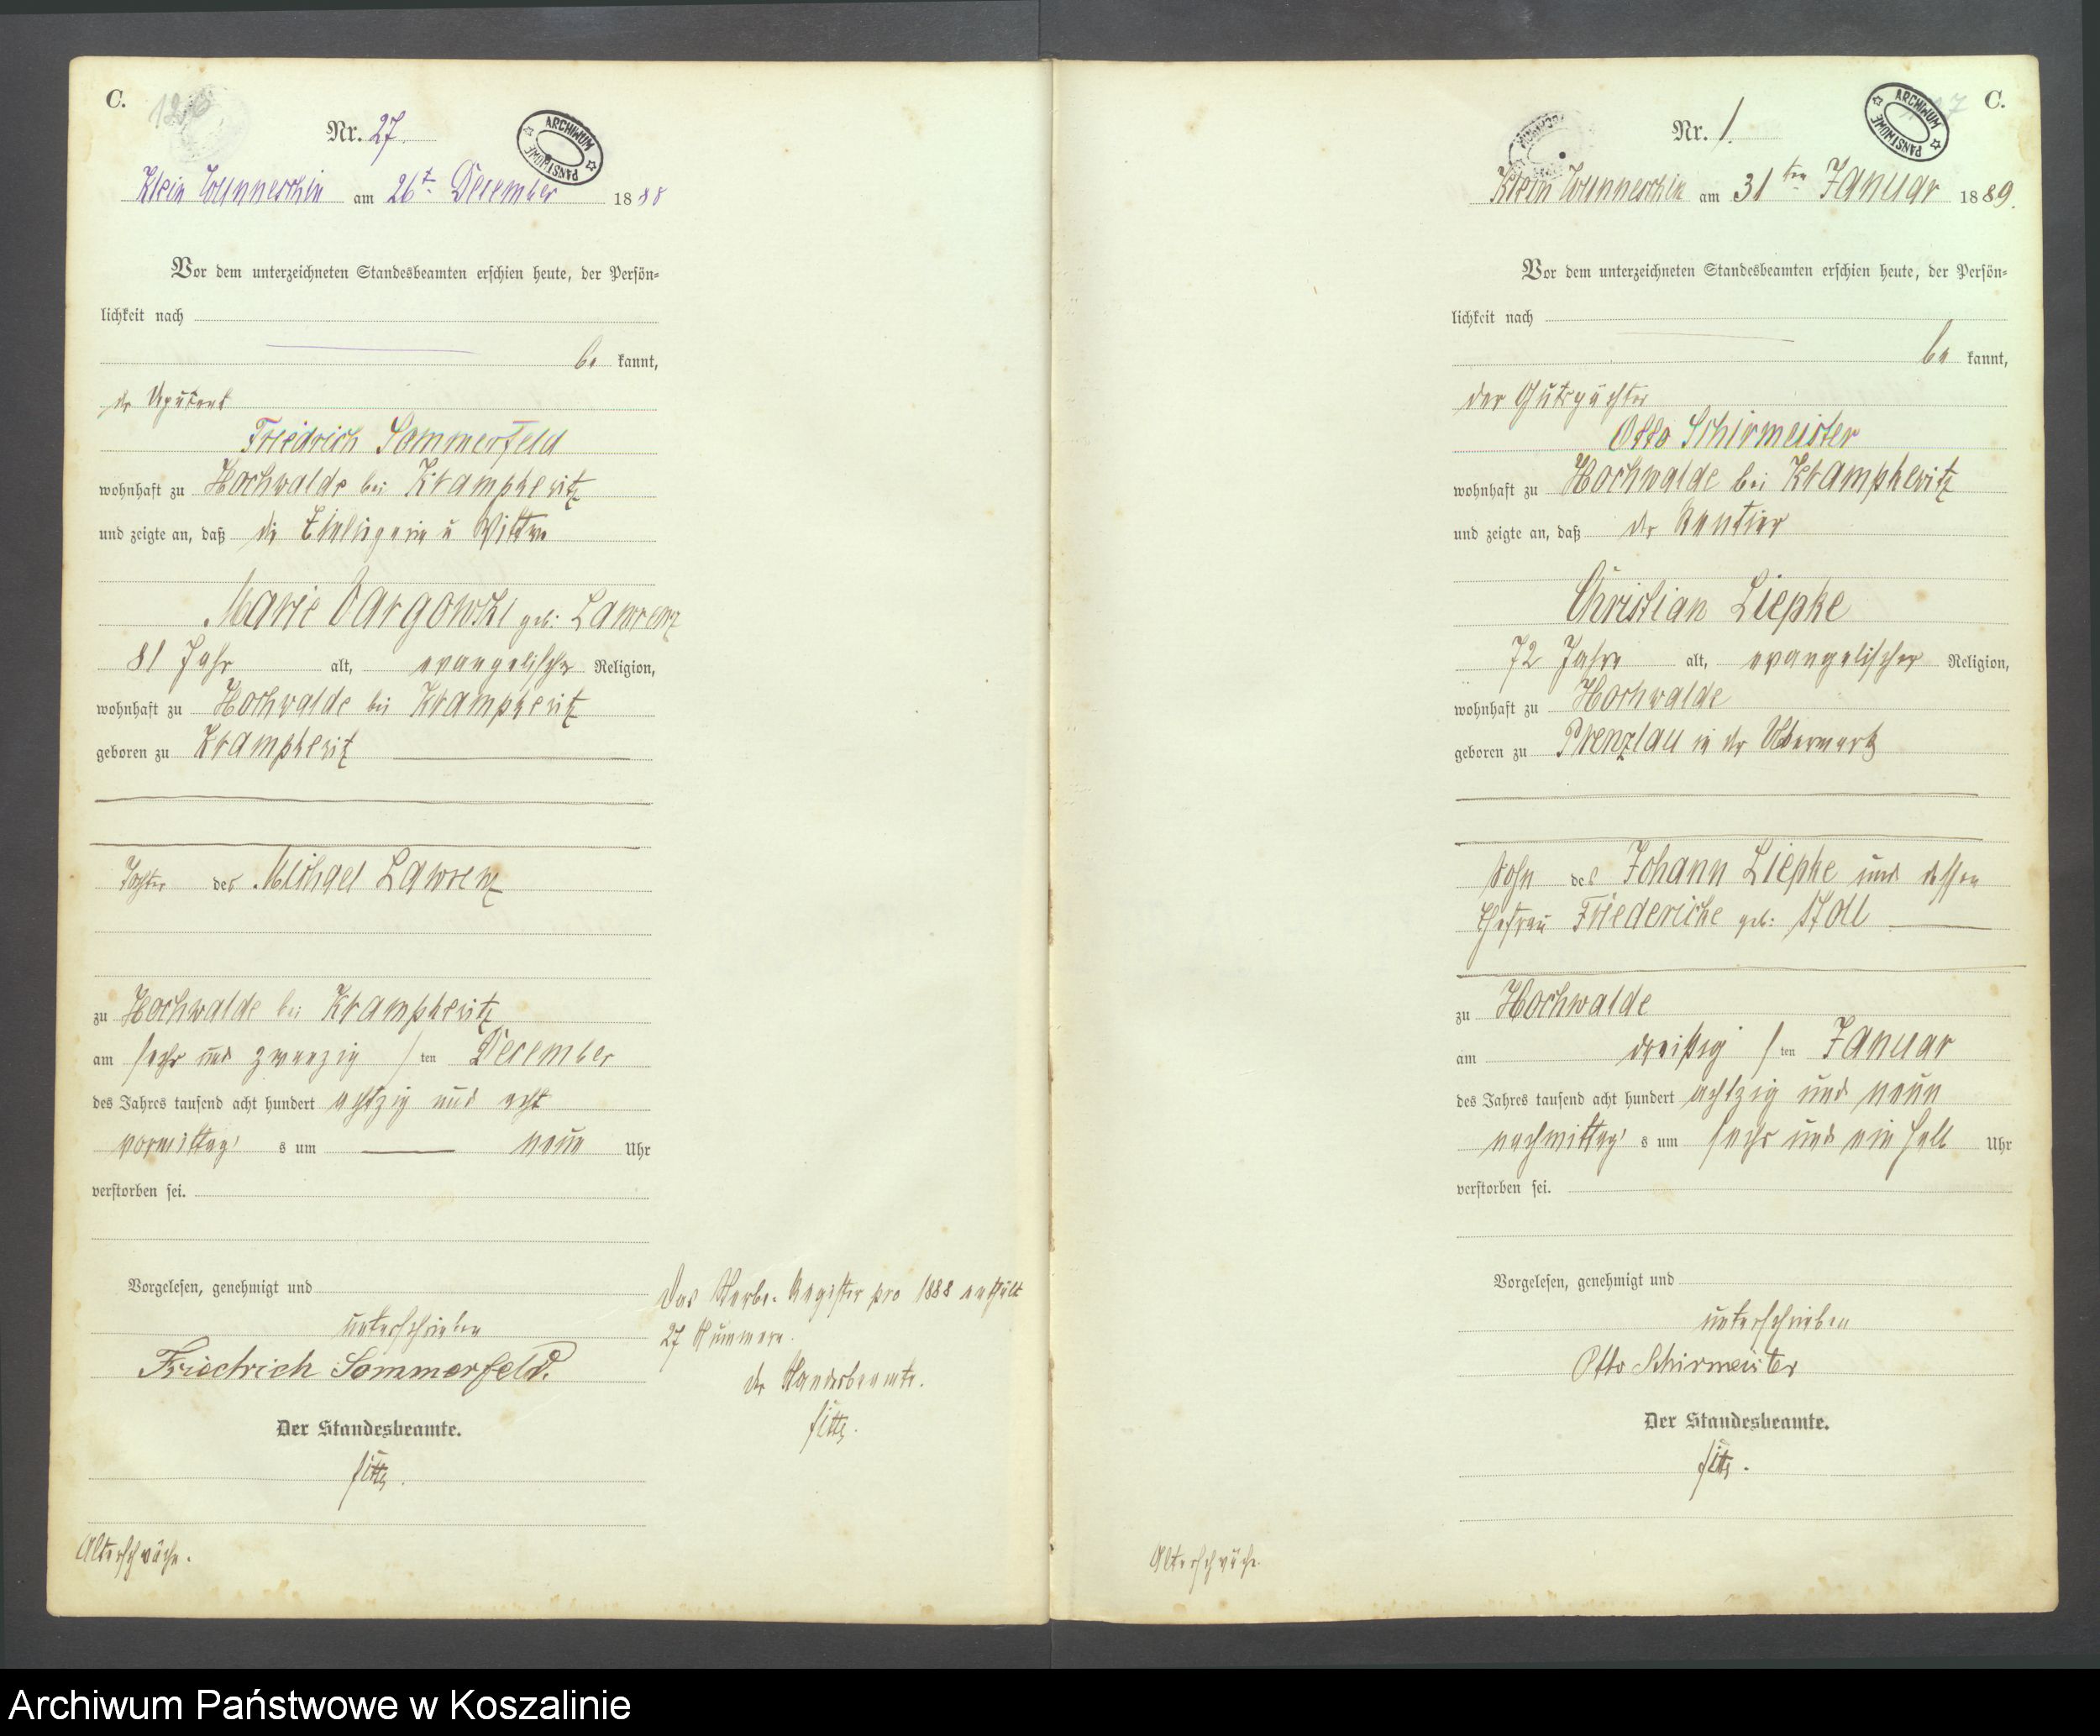 C.
126
Nr. 27.
ARCHIWUM PAŃSTWOWE
Klein Wunneschin am 26t. December 1888
Vor dem unterzeichneten Standesbeamten erschien heute, der Persön-
lichkeit nach
be kannt,
der Deputant
Friedrich Sommerfeld
wohnhaft zu Hochwalde bei Krampkewitz
und zeigte an, daß die u Wittwe
Marie Dargowski geb: Lawrenz
81 Jahr alt, evangelischer Religion,
wohnhaft zu Hochwalde bei Krampkewitz
geboren zu Krampkewitz
Tochter des Michael Lawrenz
zu Hochwalde bei Krampkewitz
am sechs und zwanzig / ten December
des Jahres tausend acht hundert achtzig und acht
vormittag s um neun Uhr
verstorben sei.
Vorgelesen, genehmigt und
unterschrieben
Friedrich Sommerfeld.
Der Standesbeamte.
Altersschwäche.
Das Sterbe-Register pro 1888 enthält
27 Nummern.
der Standesbeamte.
C.
Nr. 1.
ARCHIWUM PAŃSTWOWE
Klein Wunneschin am 31ten Januar 1889.
Vor dem unterzeichneten Standesbeamten erschien heute, der Persön-
lichkeit nach
be kannt,
der Gutspächter
Otto Schirmeister
wohnhaft zu Hochwalde bei Krampkewitz
und zeigte an, daß der Rentier
Christian Liepke
72 Jahre alt, evangelischer Religion,
wohnhaft zu Hochwalde
geboren zu Prenzlau in der Uckermark
Sohn des Johann Liepke und dessen
Ehefrau Friedericke geb: Stoll
zu Hochwalde
am dreißig / ten Januar
des Jahres tausend acht hundert achtzig und neun
nachmittag s um sechs und ein halb Uhr
verstorben sei.
Vorgelesen, genehmigt und
unterschrieben
Otto Schirmeister
Der Standesbeamte.
Altersschwäche.
Archiwum Państwowe w Koszalinie